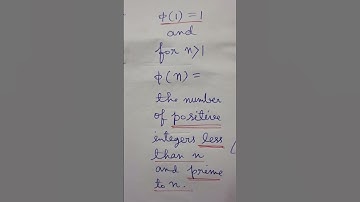 φ(1) = 1
and
for n>1
φ(n) =
the number
of positive
integers less
than n
and prime
to n.